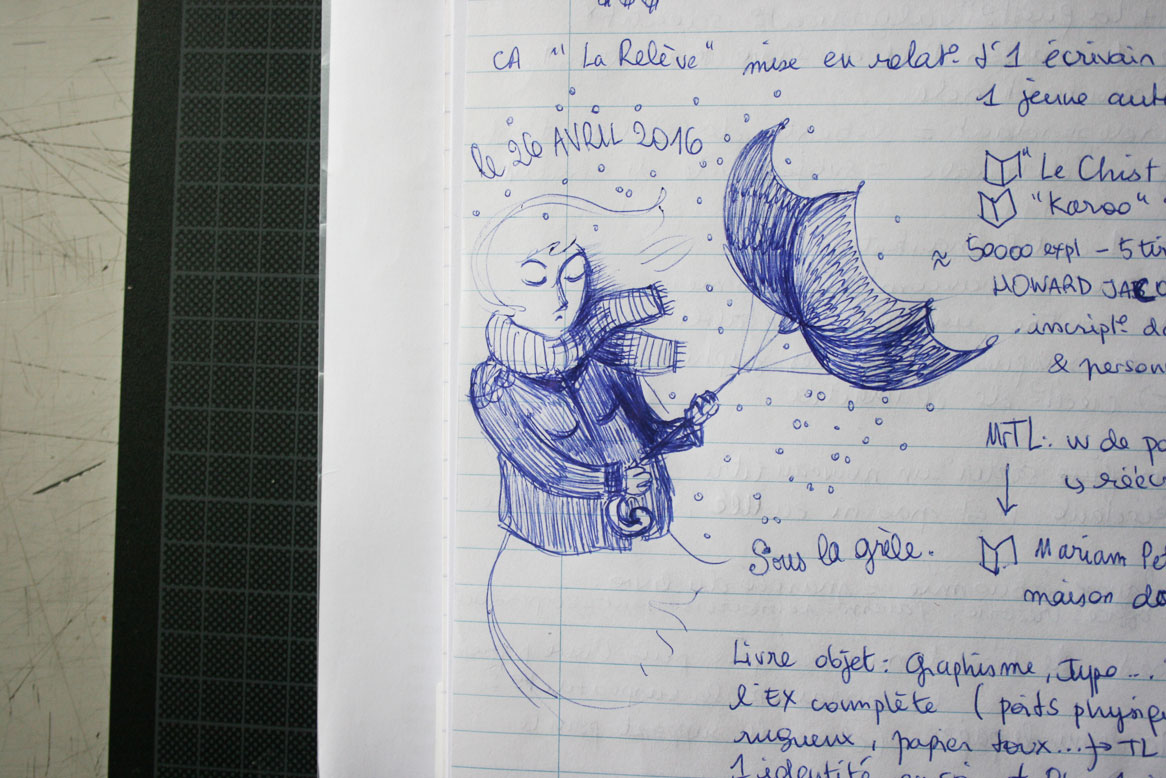 CA "La Relève" mise en relat° d'1 écrivain
1 jeune aut
le 26 AVRIL 2016
"Le Chist
"Karoo"
≈ 50000 expl - 5 ti
HOWARD JACO
. inscript° d
& person
MrTL: de po
↳ réécr
Sous la grêle.
Mariam Pet
maison do
Livre objet : Graphisme, Typo...
l'EX complète ( poids physiq
rugueux, papier doux... → TL
1 identité